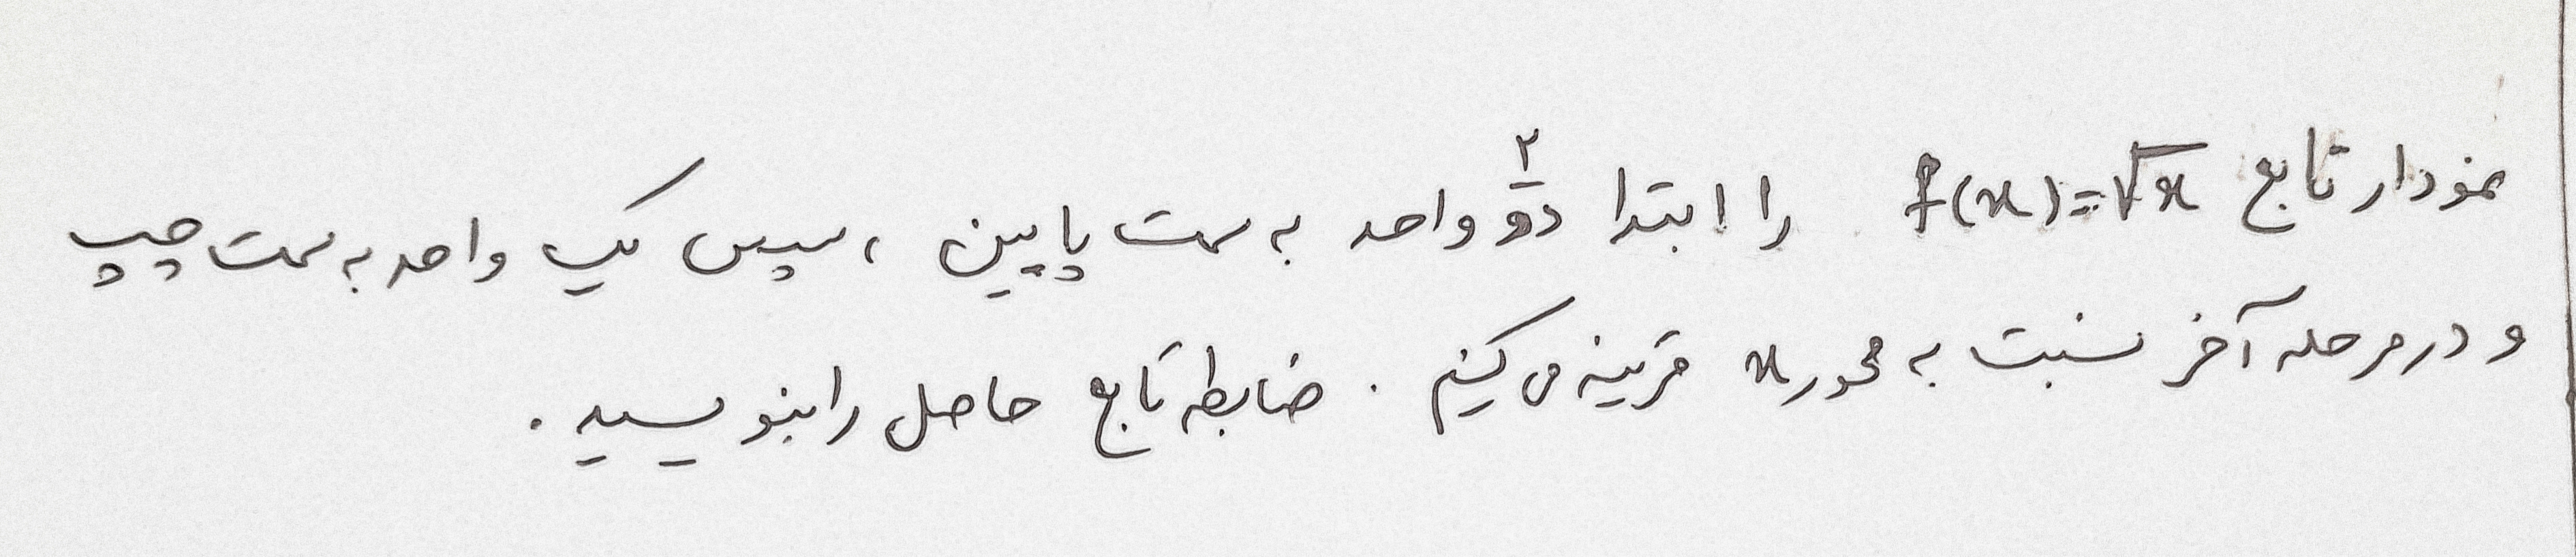 نمودار تابع f(x)=√x را ابتدا دو ۲ واحد به سمت پایین ، سپس یک واحد به سمت چپ
و در مرحله آخر نسبت به محور x قرینه می کنیم . ضابطه تابع حاصل را بنویسید .